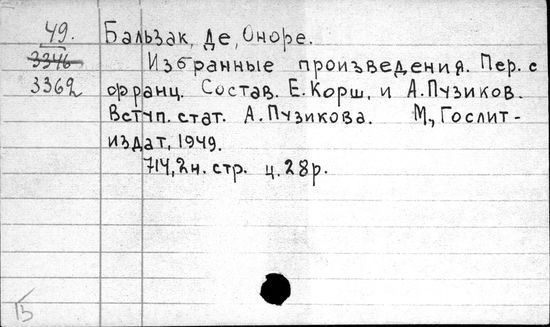 49. Бальзак, де, Оноре.
3346 Избранные произведения. Пер. с
3362 франц. Состав. Е. Корш, и А. Пузиков.
Вступ. стат. А. Пузикова. М., Гослит-
издат, 1949.
714, 2 н. стр. ц. 28 р.